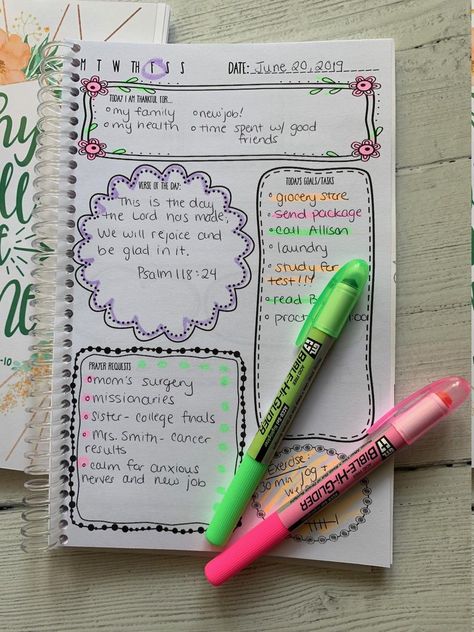 M T W T H F S S
DATE: June 20, 2019
TODAY I AM THANKFUL FOR...
• my family
• new job!
• my health
• time spent w/ good
friends
VERSE OF THE DAY:
This is the day
the Lord has made,
We will rejoice and
be glad in it.
Psalm 118:24
TODAY'S GOALS/TASKS
• grocery store
• send package
• call Allison
• laundry
• study for
test!!!
• read
PRAYER REQUESTS
• mom's surgery
• missionaries
• sister- college finals
• Mrs. Smith- cancer
results
• calm for anxious
nerves and new job
Exercise:
30 min
BIBLE-Hi-GLIDER
BIBLE-Hi-GLIDER